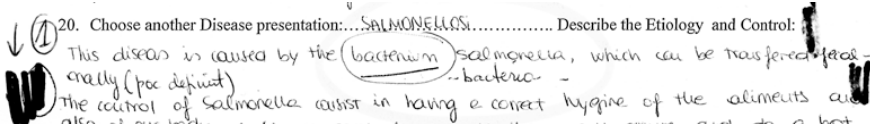 ① 20. Choose another Disease presentation:....SALMONELLOSI................ Describe the Etiology and Control:
This diseas is caused by the bacterium salmonella, which can be transfered
orally ( .. bacteria -
The control of Salmonella consist in having e correct hygine of the aliments
also of